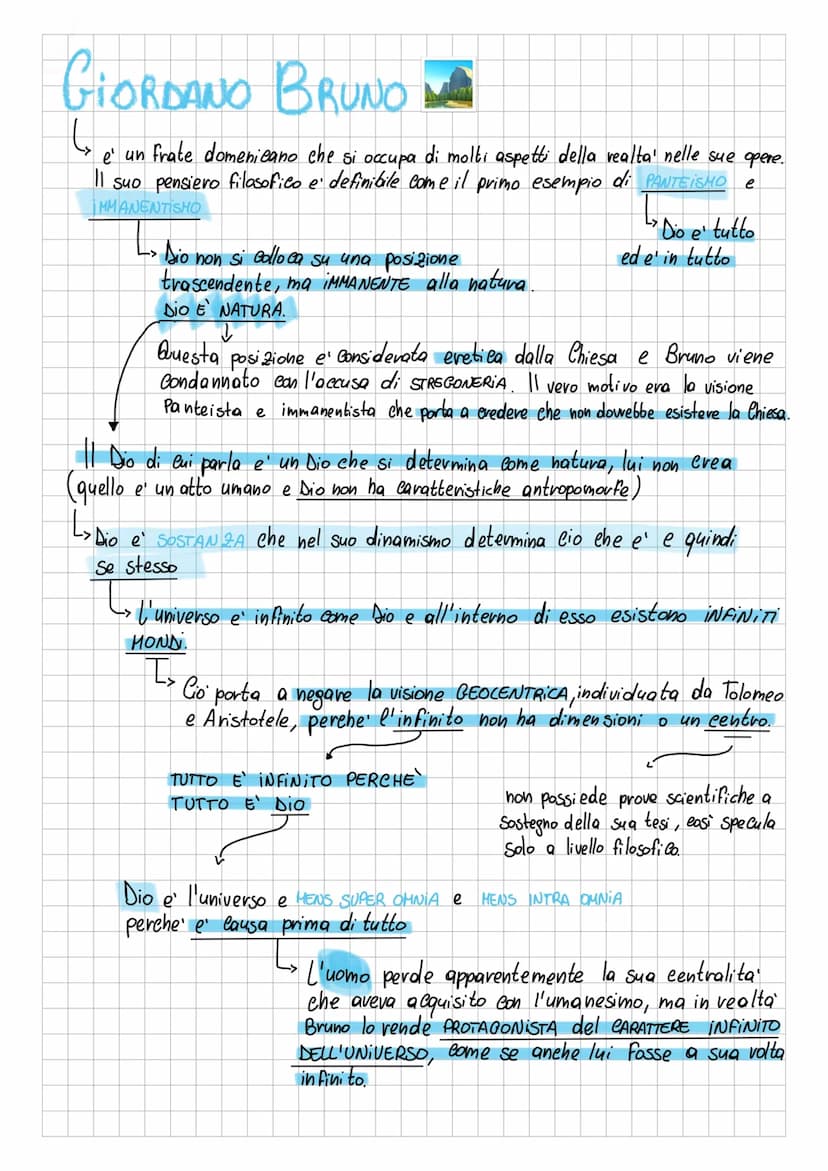 GIORDANO BRUNO
e' un frate domenicano che si occupa di molti aspetti della realta' nelle sue opere.
Il suo pensiero filosofico e' definibile come il primo esempio di PANTEISMO e
IMMANENTISMO
Dio e' tutto
ed e' in tutto
Dio non si colloca su una posizione
trascendente, ma IMMANENTE alla natura.
DIO E' NATURA.
Questa posizione e' considerata eretica dalla Chiesa e Bruno viene
condannato con l'accusa di STREGONERIA. Il vero motivo era la visione
Panteista e immanentista che porta a credere che non dovrebbe esistere la Chiesa.
Il Dio di cui parla e' un Dio che si determina come natura, lui non crea
(quello e' un atto umano e Dio non ha caratteristiche antropomorfe)
Dio e' SOSTANZA che nel suo dinamismo determina cio che e' e quindi
se stesso
L'universo e' infinito come Dio e all'interno di esso esistono INFINITI
MONDI.
Cio' porta a negare la visione GEOCENTRICA, individuata da Tolomeo
e Aristotele, perche' l'infinito non ha dimensioni o un centro.
TUTTO E' INFINITO PERCHE'
TUTTO E' DIO
non possiede prove scientifiche a
sostegno della sua tesi, così specula
solo a livello filosofico.
Dio e' l'universo e MENS SUPER OMNIA e MENS INTRA OMNIA
perche' e' causa prima di tutto
L'uomo perde apparentemente la sua centralita'
che aveva acquisito con l'umanesimo, ma in realta'
Bruno lo rende PROTAGONISTA del CARATTERE INFINITO
DELL'UNIVERSO, come se anche lui fosse a sua volta
infinito.